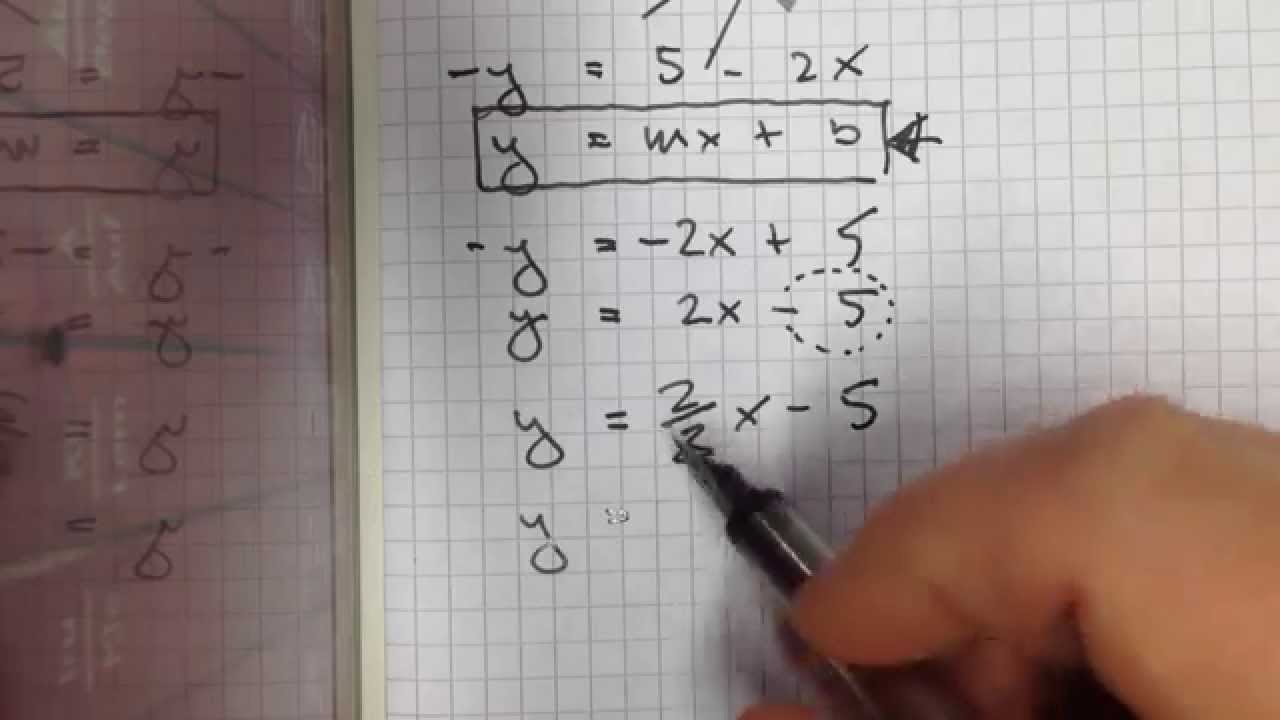 -y = 5 - 2x
y = mx + b
-y = -2x + 5
y = 2x - 5
y = 2/2 x - 5
y =